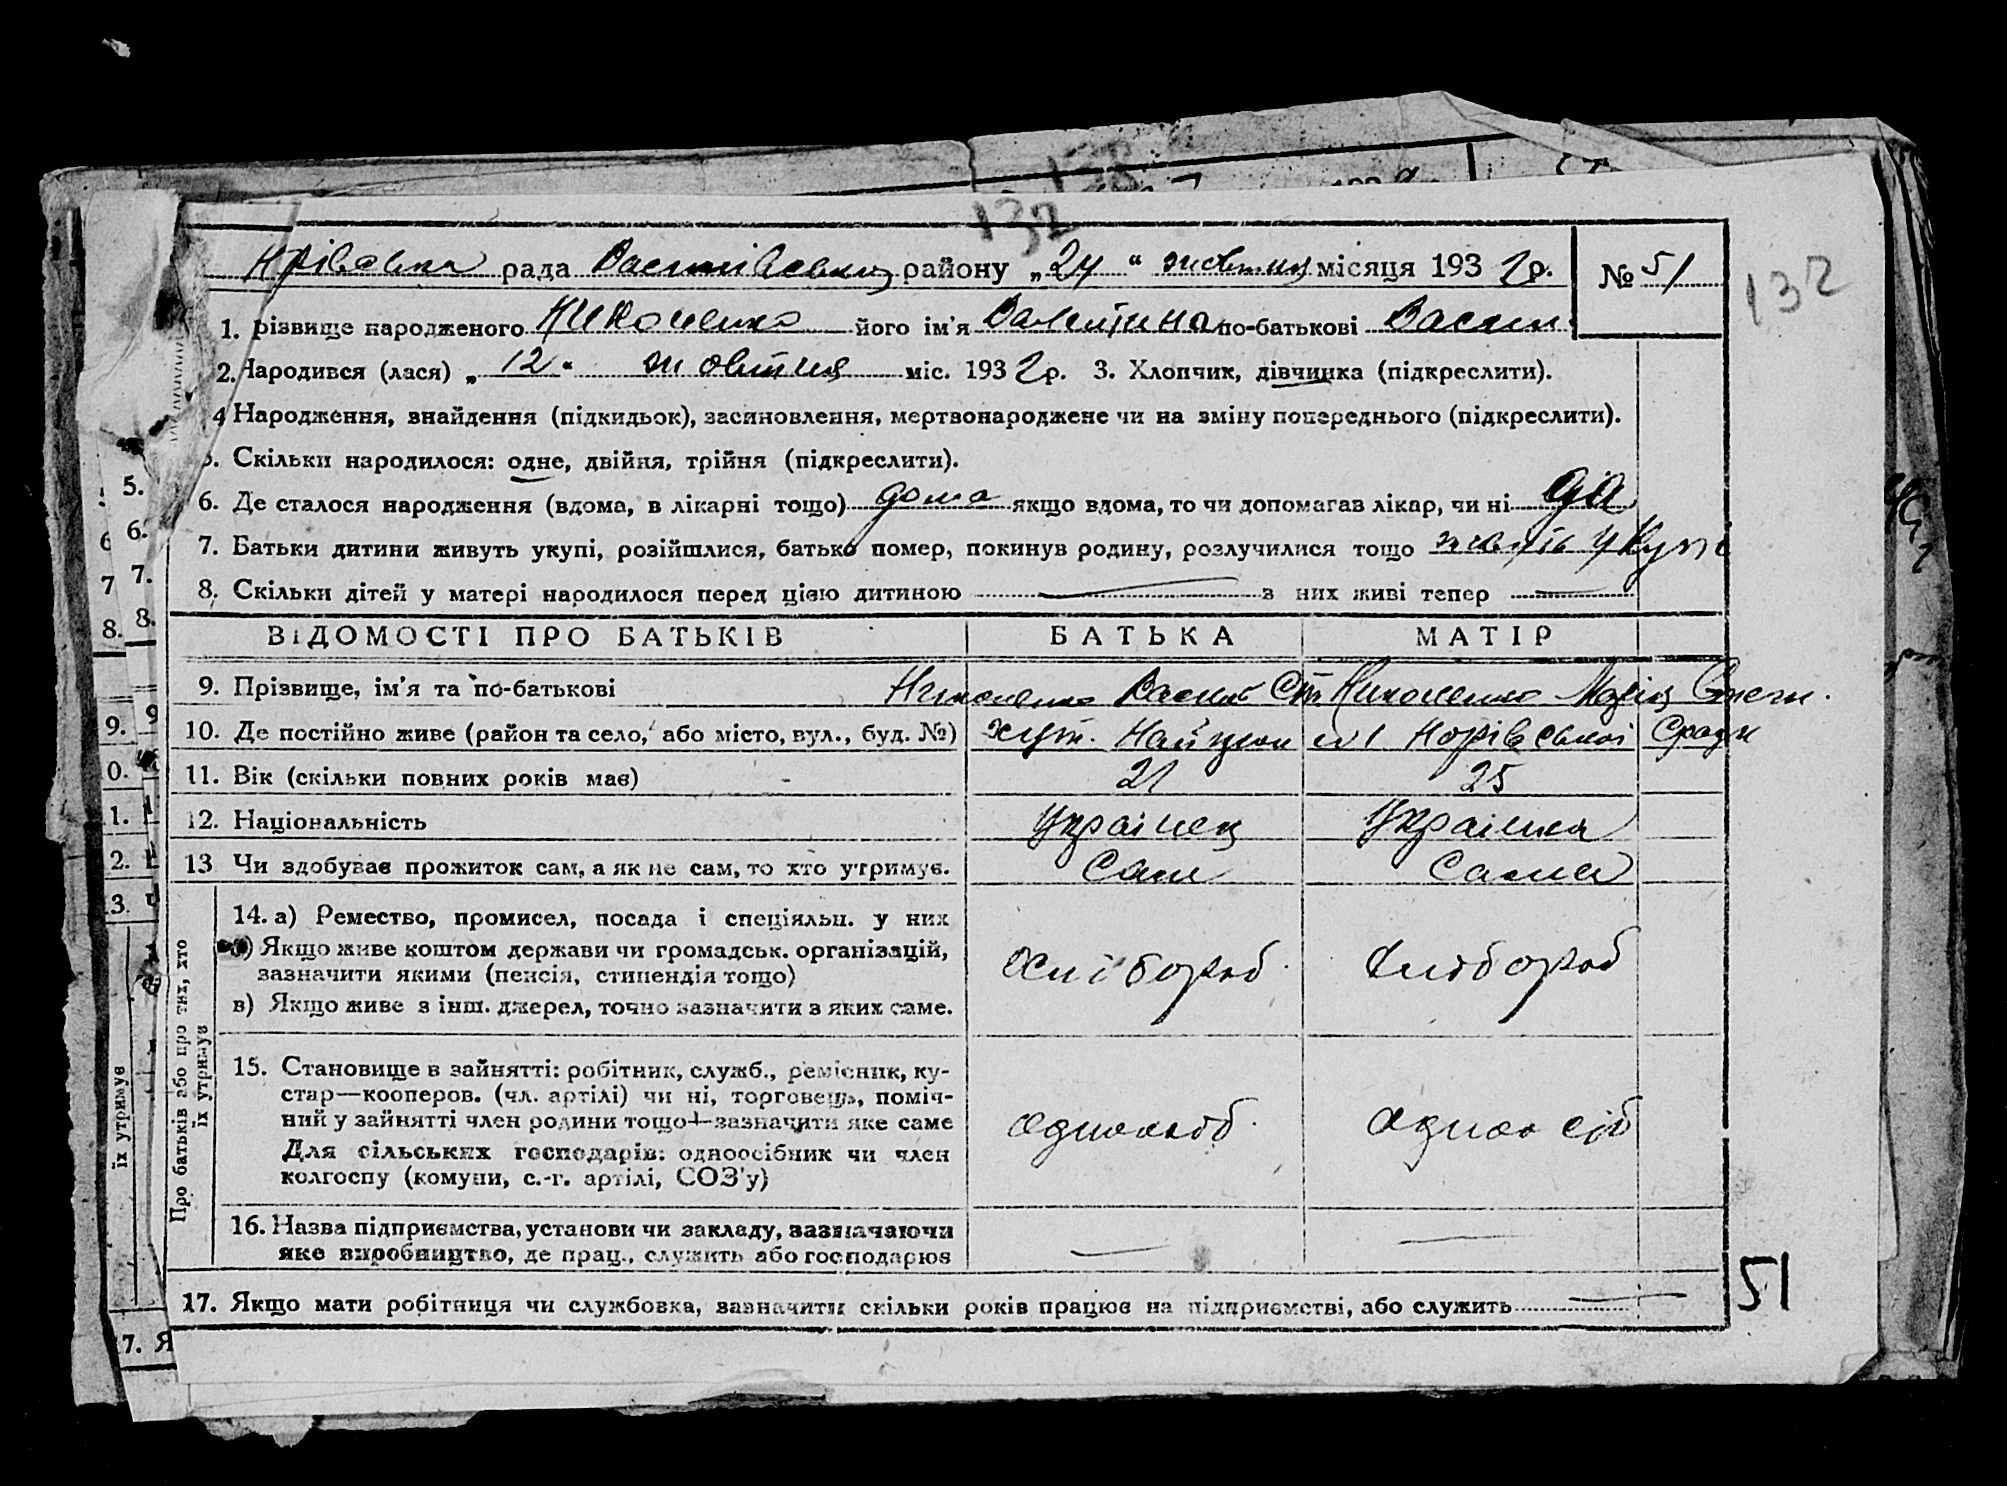 132
рада Василівськ району „24“ жовтня місяця 1932 р. № 51
132
1. різвище народженого Николенко його ім'я Валентина по-батькові Васил.
2. Народився (лася) „12“ жовтня міс. 1932 р. 3. Хлопчик, дівчинка (підкреслити).
4 Народження, знайдення (підкидьок), засиновлення, мертвонароджене чи на зміну попереднього (підкреслити).
5. Скільки народилося: одне, двійня, трійня (підкреслити).
6. Де сталося народження (вдома, в лікарні тощо) дома якщо вдома, то чи допомагав лікар, чи ні да
7. Батьки дитини живуть укупі, розійшлися, батько помер, покинув родину, розлучилися тощо живуть укупі
8. Скільки дітей у матері народилося перед цією дитиною — з них живі тепер —
ВІДОМОСТІ ПРО БАТЬКІВ БАТЬКА МАТІР
9. Прізвище, ім'я та по-батькові Николенко Васил Ст. Николенко Марія Степ.
10. Де постійно живе (район та село, або місто, вул., буд. №) хут. Норівської Сради
11. Вік (скільки повних років має) 21 25
12. Національність Українец Українка
13 Чи здобуває прожиток сам, а як не сам, то хто утримує. Сам Сама
Про батьків або про тих, хто їх утримує
14. а) Ремество, промисел, посада і спеціяльн. у них
б) Якщо живе коштом держави чи громадськ. організацій,
зазначити якими (пенсія, стипендія тощо) хлібороб. хлібороб
в) Якщо живе з інш. джерел, точно зазначити з яких саме.
15. Становище в зайнятті: робітник, служб., ремісник, ку-
стар—кооперов. (чл. артілі) чи ні, торговець, поміч-
ний у зайнятті член родини тощо—зазначити яке саме одноосіб. одноосіб
Для сільських господарів: одноосібник чи член
колгоспу (комуни, с.-г. артілі, СОЗ'у)
16. Назва підприємства, установи чи закладу, зазначаючи
яке виробництво, де прац., служить або господарює — —
17. Якщо мати робітниця чи службовка, зазначити скільки років працює на підприємстві, або служить —
51
5.
6.
7.
8.
9.
їх утримує
7. Я